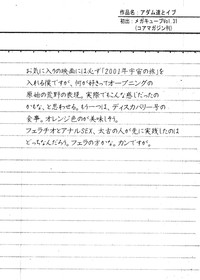 作品名：アダム達とイブ
初出：メガキューブVol.21
（コアマガジン刊）
お気に入りの映画には必ず「2001年宇宙の旅」を
入れる僕ですが、何が好きってオープニングの
原始の荒野の表現。実際でもこんな感じだったの
かもな、と思わせる。もう一つは、ディスカバリー号の
食事。オレンジ色のが美味しそう。
フェラチオとアナルSEX、太古の人が先に実践したのは
どっちなんだろう。フェラの方かな。カンですが。